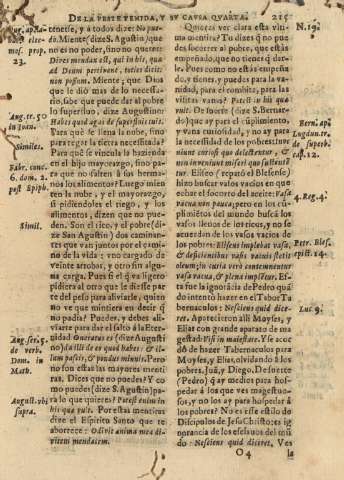 DE LA PESTE FENIDA, Y SV CAUSA QVARTA. 215
tenesse, y a todos dize: No puedo.
Miente (dize S. Agustin) que
no es no poder, sino no querer:
Potest enim in his qui vult, quia
ad Deum pertinent, toties dicit:
non possum. Miente; que Dios
que le diò mas de lo necessario,
sabe que puede dar al pobre
lo superfluo, dize Augustino:
Habes quod agas de superfluitate.
Para què se llena la nube, sino
para regar la tierra necessitada?
Para què se vincula la hazienda
en el hijo mayorazgo, sino para
que no falten à sus hermanos
los alimentos? Luego mienten
la nube, y el mayorazgo,
si pidiendoles el riego, y los
alimentos, dizen que no pueden.
Son el rico, y el pobre (dize
San Agustin) dos caminantes
que van juntos por el camino
de la vida: vno cargado de
veinte arrobas, y otro sin alguna
carga. Pues si el q̃ va ligero
pidiera al otro que le diesse parte
del peso para aliviarle, quien
no ve que mintiera en dezir q̃
no podia? Pueder, y debes aliviarte
para dar salto à la Eternidad:
Oneratus es (dize Augustino)
da illi de eo quod habes: & illum
pascis, & pondus minuis. Pero
no son estas las mayores mentiras.
Dizes que no puedes? Y como
puedes (dize S. Augustin) para
lo que quieres? Potest enim in
his quæ vult. Por estas mentiras
dize el Espiritu Santo que te
aborrece: Odivit anima mea divitem
mendacem.
Quieres ver clara esta vltima
mentira? Tu dizes q̃ no puedes
socorrer al pobre, que està
empeñado, que no tienes que dar?
Pues como no està empeñado,
y tienes, y puedes para la vanidad,
para el combite, para las
visitas vanas? Potest in his quæ
vult. De suerte (dize S. Bernardo)
que ay para el cumplimiento,
y vana curiosidad, y no ay para
la necessidad del pobre: Inveniunt
curiosi quo delectentur, &
non inveniunt miseri quo sustententur.
Eliseo (reparò el Blesense)
hizo buscar vasos vacios en que
echar el socorro del azeyte: Vasa
vacua non pauca; pero en los cumplimientos
del mundo buscã los
vasos llenos de los ricos, y no se
acuerdan de los vasos vacios de
los pobres: Eliseus implebat vasa,
& deficientibus vasis vacuis stetit
oleum; tu curia verò contemnuntur
vasa vacua, & plena impletur. Essa
fue la ignorãcia de Pedro quãdo
intentò hazer en el Tabor Tabernaculos:
Nesciens quid diceret.
Aparecieron alli Moyses, y
Elias con grande aparato de magestad:
Visi in maiestate. Y se acordò
de hazer Tabernaculos para
Moyses, y Elias, olvidando à los
pobres. Juã, y Diego. De suerte
(Pedro) q̃ ay medios para hospedar
à los que vès magestuosos,
y no los ay para hospedar à
los pobres? No es esse estilo de
Discipulos de Jesu Christo; es ignorancia
de hombres del mundo:
Nesciens quid diceret. Ves
O4 la
23.
Aug. tr. 50
in Ioan.
Similes.
Simil.
Aug. ser. 9.
de verb.
Dom. in
Math.
August. vbi
supra.
N. 19.
Bern. ap.
Lugdun. tr.
de superb.
cap. 12.
4. Reg. 4.
Petr. Bles.
epist. 14.
Luc. 9.